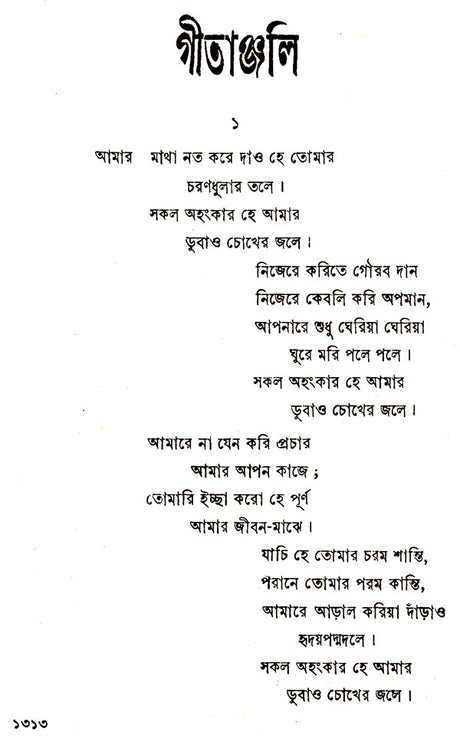 গীতাঞ্জলি
১
আমার মাথা নত করে দাও হে তোমার
চরণধুলার তলে।
সকল অহংকার হে আমার
ডুবাও চোখের জলে।
নিজেরে করিতে গৌরব দান
নিজেরে কেবলি করি অপমান,
আপনারে শুধু ঘেরিয়া ঘেরিয়া
ঘুরে মরি পলে পলে।
সকল অহংকার হে আমার
ডুবাও চোখের জলে।
আমারে না যেন করি প্রচার
আমার আপন কাজে;
তোমারি ইচ্ছা করো হে পূর্ণ
আমার জীবন-মাঝে।
যাচি হে তোমার চরম শান্তি,
পরানে তোমার পরম কান্তি,
আমারে আড়াল করিয়া দাঁড়াও
হৃদয়পদ্মদলে।
সকল অহংকার হে আমার
ডুবাও চোখের জলে।
১৩১৩